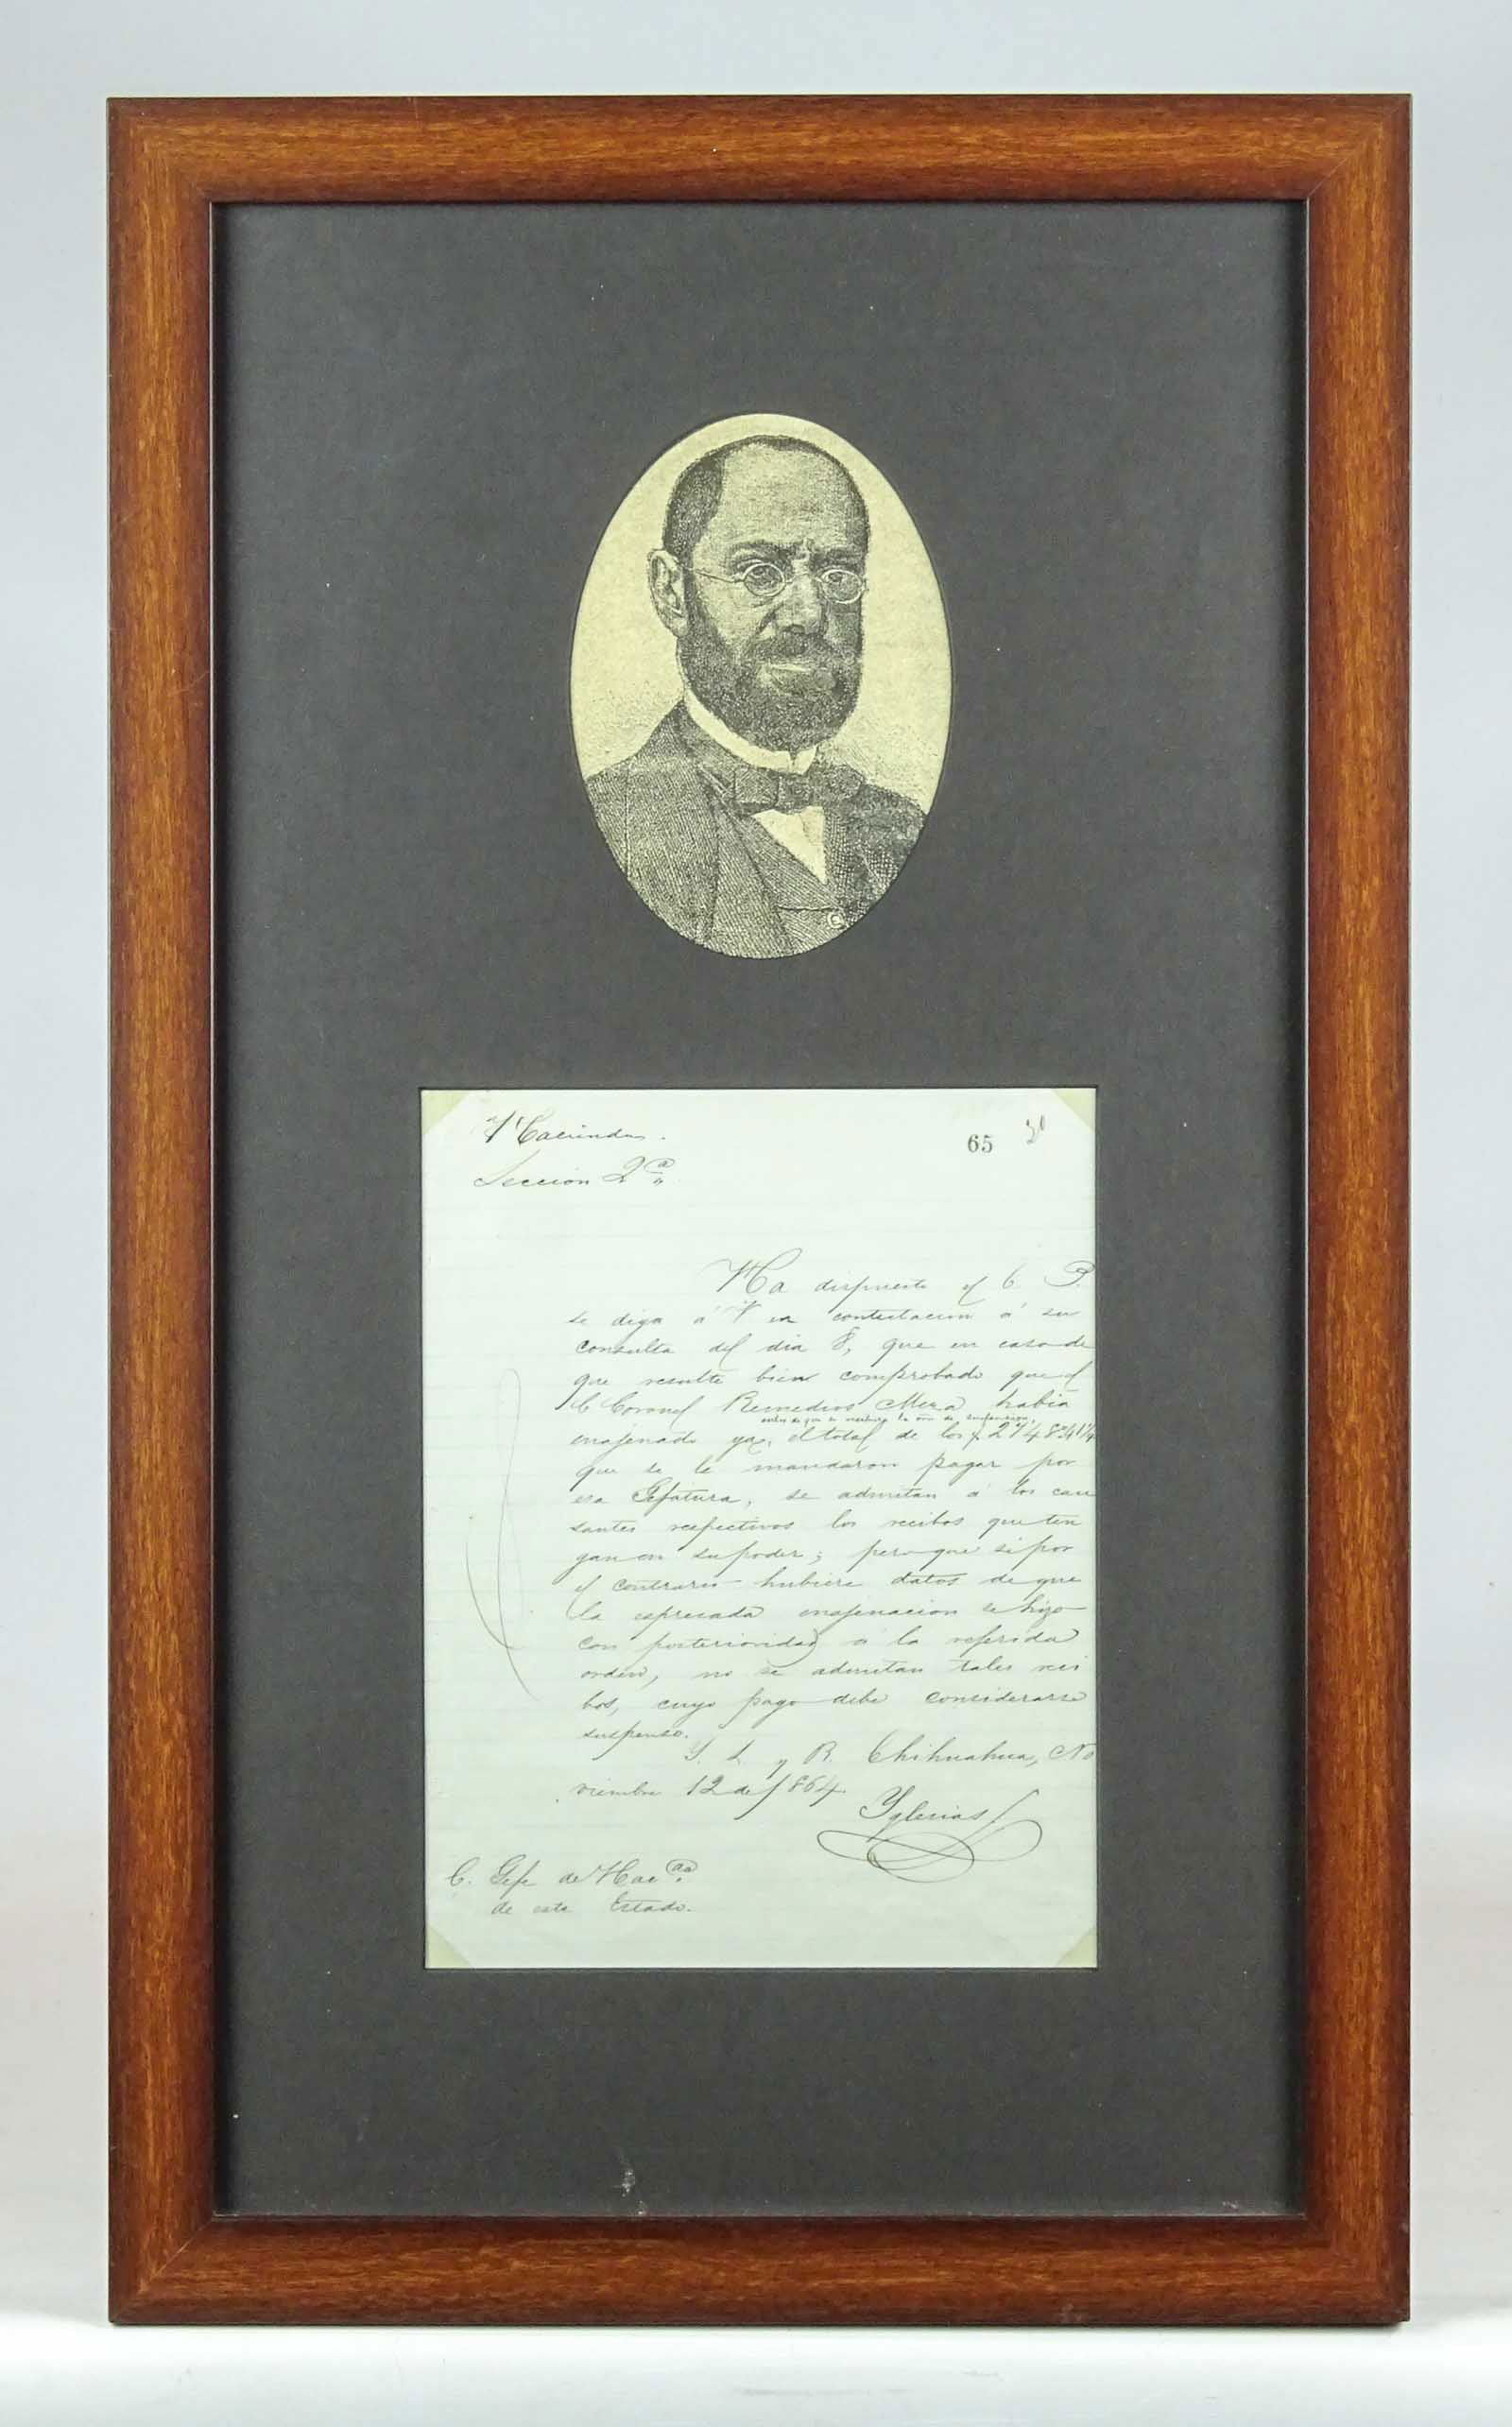 Hacienda.
65
Seccion 2ª
Ha dispuesto el C. P.
se diga á V en contestacion á su
consulta del dia 8, que en caso de
que resulte bien comprobado que el
C Coronel Remedios Mesa habia
antes de que se recibiera la orn de suspension,
enajenado ya, el total de los $
que se le mandaron pagar por
esa Gefatura, se admitan á los cau
santes respectivos los recibos que ten
gan en su poder; pero que si por
el contrario hubiere datos de que
la espresada enajenacion se hizo
con posterioridad á la referida
orden, no se admitan tales reci
bos, cuyo pago debe considerarse
suspenso.
L. y R. Chihuahua, No
viembre 12 de 1864.
Yglesias
C. Gefe de Hacda.
de este Estado.